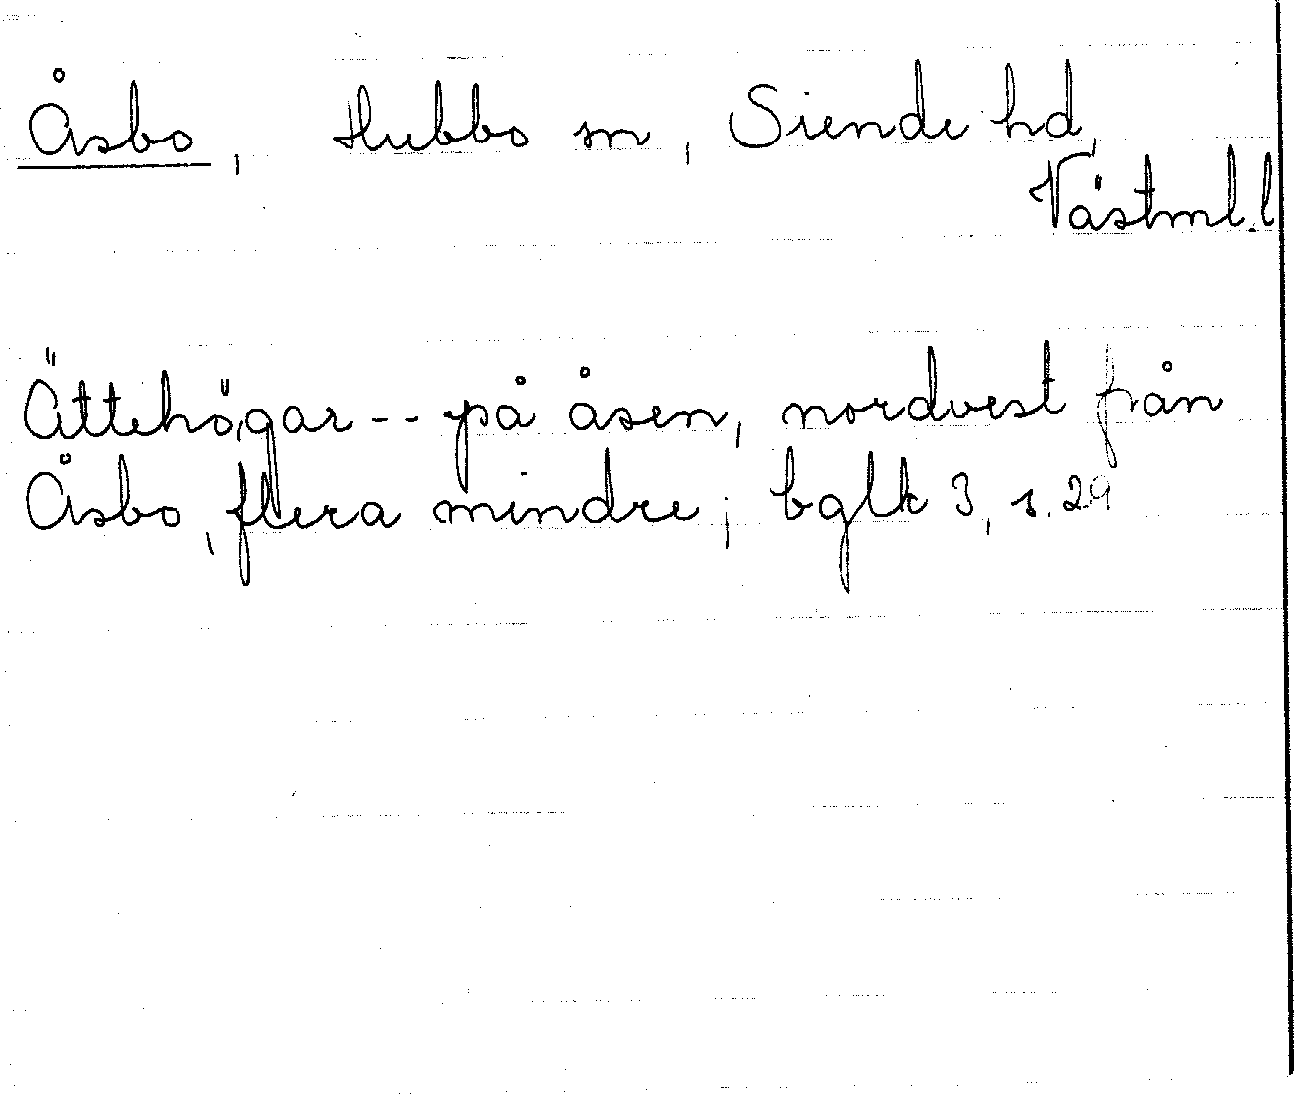 Åsbo, Hubbo sn, Siende hd,
Västml. l
Ättehögar -- på åsen, nordvest från
Åsbo, flera mindre; bglk 3, s. 29